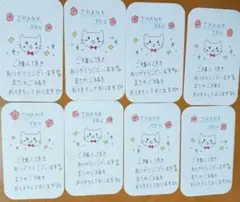 THANK
YOU
ご購入頂き
ありがとうございます
またのご縁を
お待ちしております
THANK
YOU
ご購入頂き
ありがとうございます
またのご縁を
お待ちしております
THANK
YOU
ご購入頂き
ありがとうございます
またのご縁を
お待ちしております
THANK
YOU
ご購入頂き
ありがとうございます
またのご縁を
お待ちしております
THANK
YOU
ご購入頂き
ありがとうございます
またのご縁を
お待ちしております
THANK
YOU
ご購入頂き
ありがとうございます
またのご縁を
お待ちしております
THANK
YOU
ご購入頂き
ありがとうございます
またのご縁を
お待ちしております
THANK
YOU
ご購入頂き
ありがとうございます
またのご縁を
お待ちしております